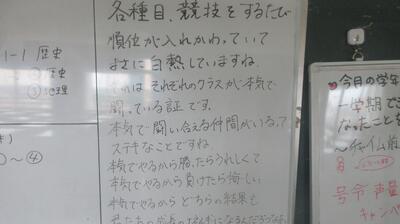 1-1 歴史
② 歴史
③ 地理
～④
各種目、競技をするたび
順位が入れかわっていて
まさに白熱していますね。
それはそれぞれのクラスが本気で
闘っている証です。
本気で闘い合える仲間がいるって
ステキなことですね。
本気でやるから勝ったらうれしくて
本気でやるから負けたら悔しい
本気でやるから どちらの結果も
今月の学年
一学期で
なったことを
号令 声量
キャンペ